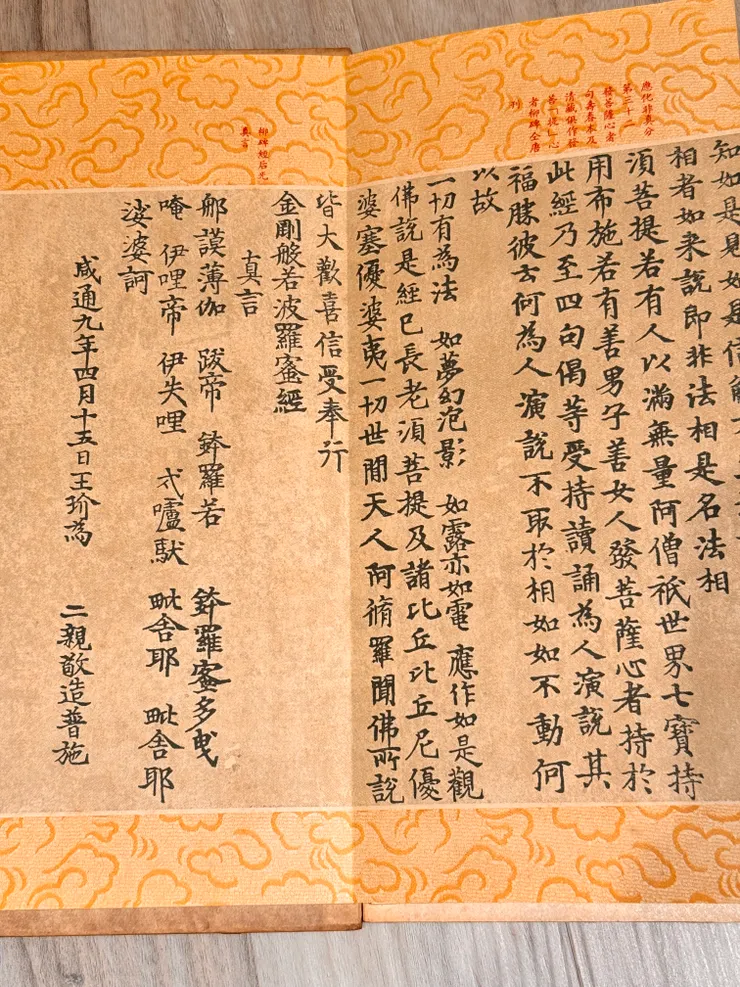 應化非真分
第三十二
發菩薩心者
句壽春本及
清藏俱作發
菩「提」心
者柳碑全唐
刊
知如是見如是信解不
相者如来說即非法相是名法相
湏菩提若有人以滿無量阿僧祇世界七寶持
用布施若有善男子善女人發菩薩心者持於
此經乃至四句偈等受持讀誦為人演說其
福勝彼云何為人演說不取於相如如不動何
以故
一切有為法 如夢幻泡影 如露亦如電 應作如是觀
佛說是經已長老湏菩提及諸比丘比丘尼優
婆塞優婆夷一切世間天人阿脩羅聞佛所說
皆大歡喜信受奉行
金剛般若波羅蜜經
柳碑經后无
真言
真言
郍謨薄伽 跋帝 鉢羅若 鉢羅蜜多曳
唵 伊哩帝 伊失哩 戍嚧馱 毗舍耶 毗舍耶
娑婆訶
咸通九年四月十五日王玠為 二親敬造普施